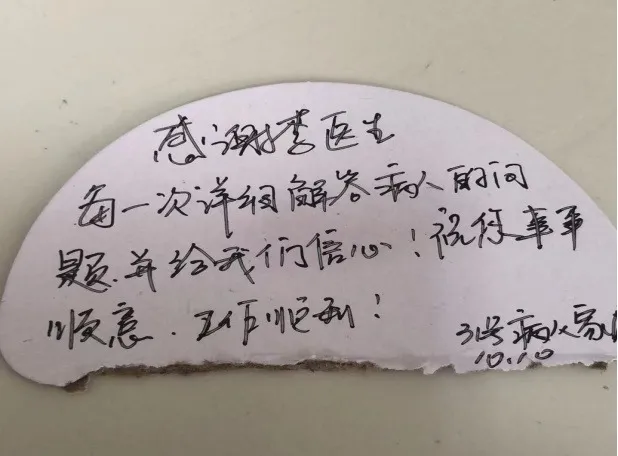 感谢李医生
每一次详细解答病人的问
题.并给我们信心！祝你事事
顺意.工作顺利！
31号病人家
10.10